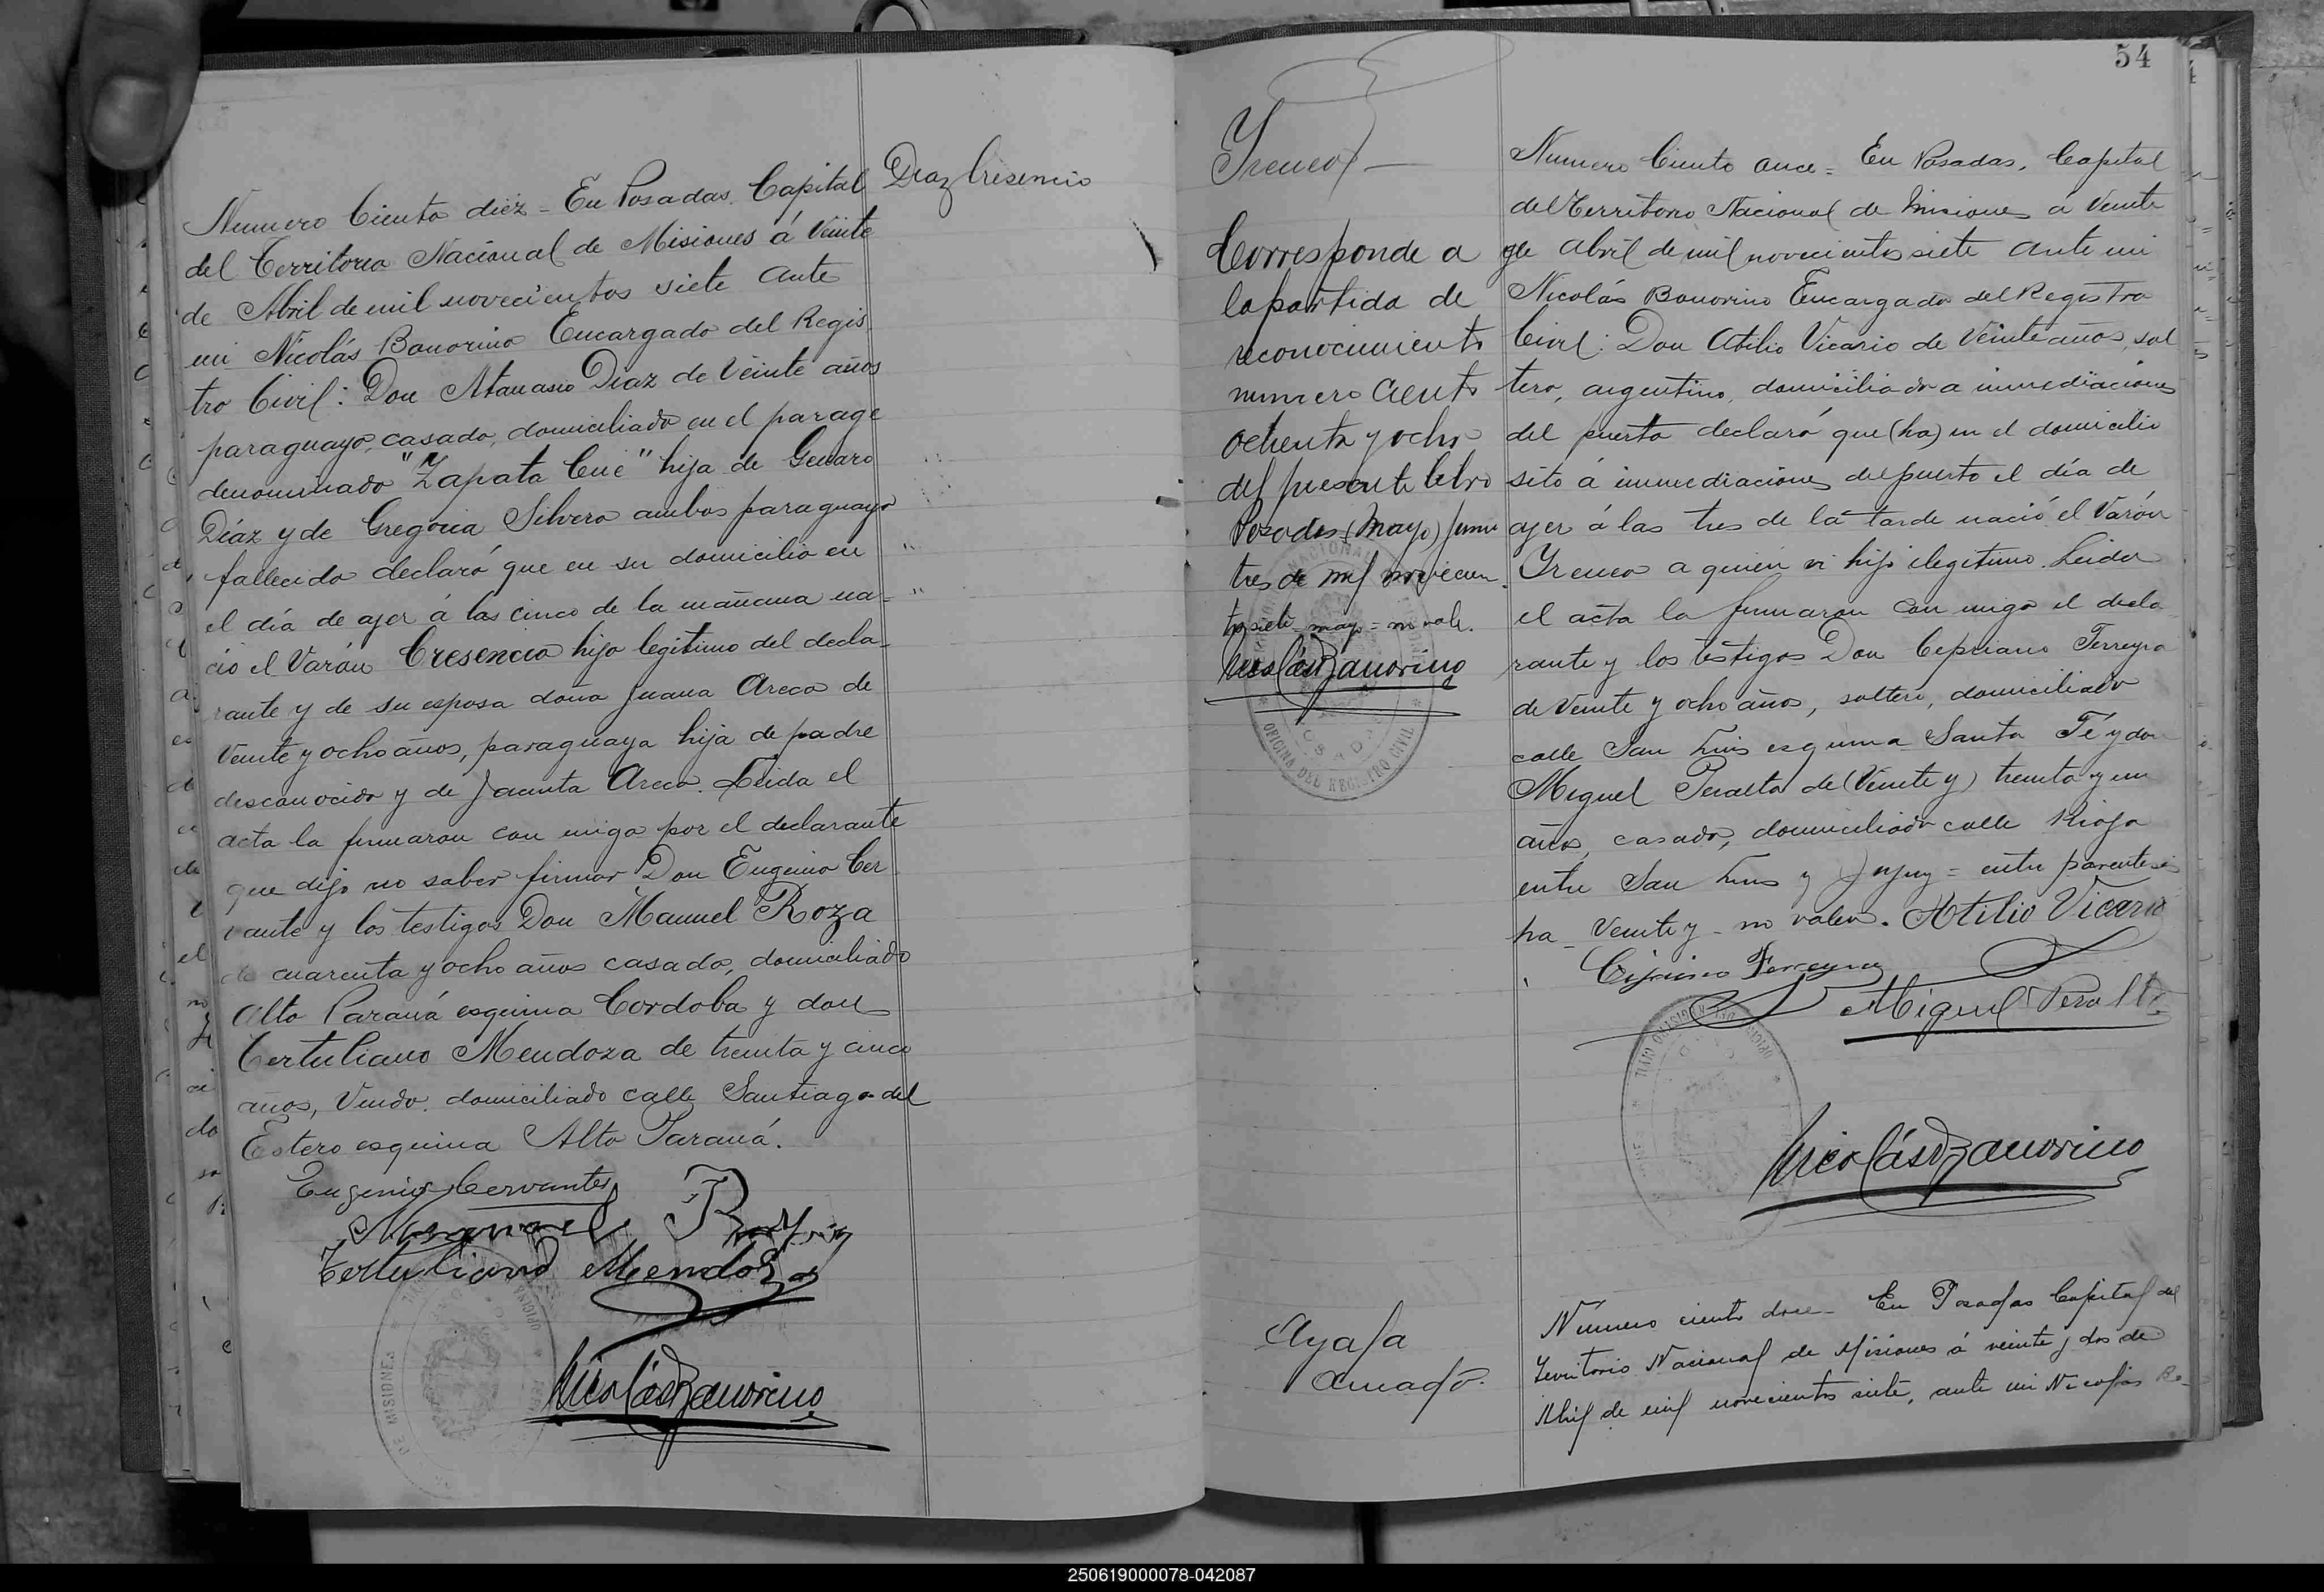 Numero Ciento diez = En Posadas. Capital
del Territorio Nacional de Misiones á Veinte
de Abril de mil novecientos siete ante
mi Nicolás Bonorino Encargado del Regis
tro Civil: Don Atanasio Diaz de Veinte años
paraguayo, casado, domiciliado en el parage
denominado "Zapata Cué" hijo de Genaro
Díaz y de Gregoria Silvero ambos paraguayo
fallecido declaró que en su domicilio en
el día de ayer á las cinco de la mañana na=
ció el Varón Cresencio hijo legitimo del decla-
rante y de su esposa doña Juana Areco de
Veinte y ocho años, paraguaya hija de padre
desconocido y de Jacinta Areco. Leida el
acta la firmaron con migo por el declarante
que dijo no saber firmar Don Eugenio Cer
vante y los testigos Don Manuel Roza
de cuarenta y ocho años casado, domiciliado
Alto Paraná esquina Cordoba y don
Tertuliano Mendoza de treinta y cinco
años, Viudo. domiciliado calle Santiago del
Estero esquina Alto Paraná.
Eugenio Cervantes
Manuel
Tertuliano Mendoza
DE MISIONES
Nicolás Bonorino
Diaz Cresencio
54
Yreneo -
Corresponde a
la partida de
reconocimiento
numero ciento
ochenta y ocho
del presente libro
Posadas (mayo) junio
tres de mil novecien
tos siete = mayo = no vale.
Nicolás Bonorino
OFICINA DEL REGISTRO CIVIL
Numero Ciento once = En Posadas. Capital
del Territorio Nacional de Misiones a Veinte
de Abril de mil novecientos siete ante mi
Nicolás Bonorino Encargado del Registro
Civil: Don Atilio Vicario de Veinte años, sol
tero, argentino, domiciliado a inmediaciones
del puerto declaró que (ha) en el domicilio
sito á inmediaciones del puerto el día de
ayer á las tres de la tarde nació el Varón
Yreneo a quien vi hijo ilegitimo. Leida
el acta la firmaron con migo el decla
rante y los testigos Don Cipriano Ferreyra
de Veinte y ocho años, soltero, domiciliado
calle San Luis esquina Santa Fé y don
Miguel Peralta de (Veinte y) treinta y un
años, casado, domiciliado calle Rioja
entre San Luis y Jujuy = entre parentesis
ha - Veinte y - no valen. Atilio Vicario
Cipriano Ferreyra
Miguel Peralta
OFICINA DEL REGISTRO CIVIL
Nicolás Bonorino
Ayala
Amado.
Número ciento doce - En Posadas Capital del
Territorio Nacional de Misiones á veinte y dos de
Abril de mil novecientos siete, ante mi Nicolás Bo-
250619000078-042087